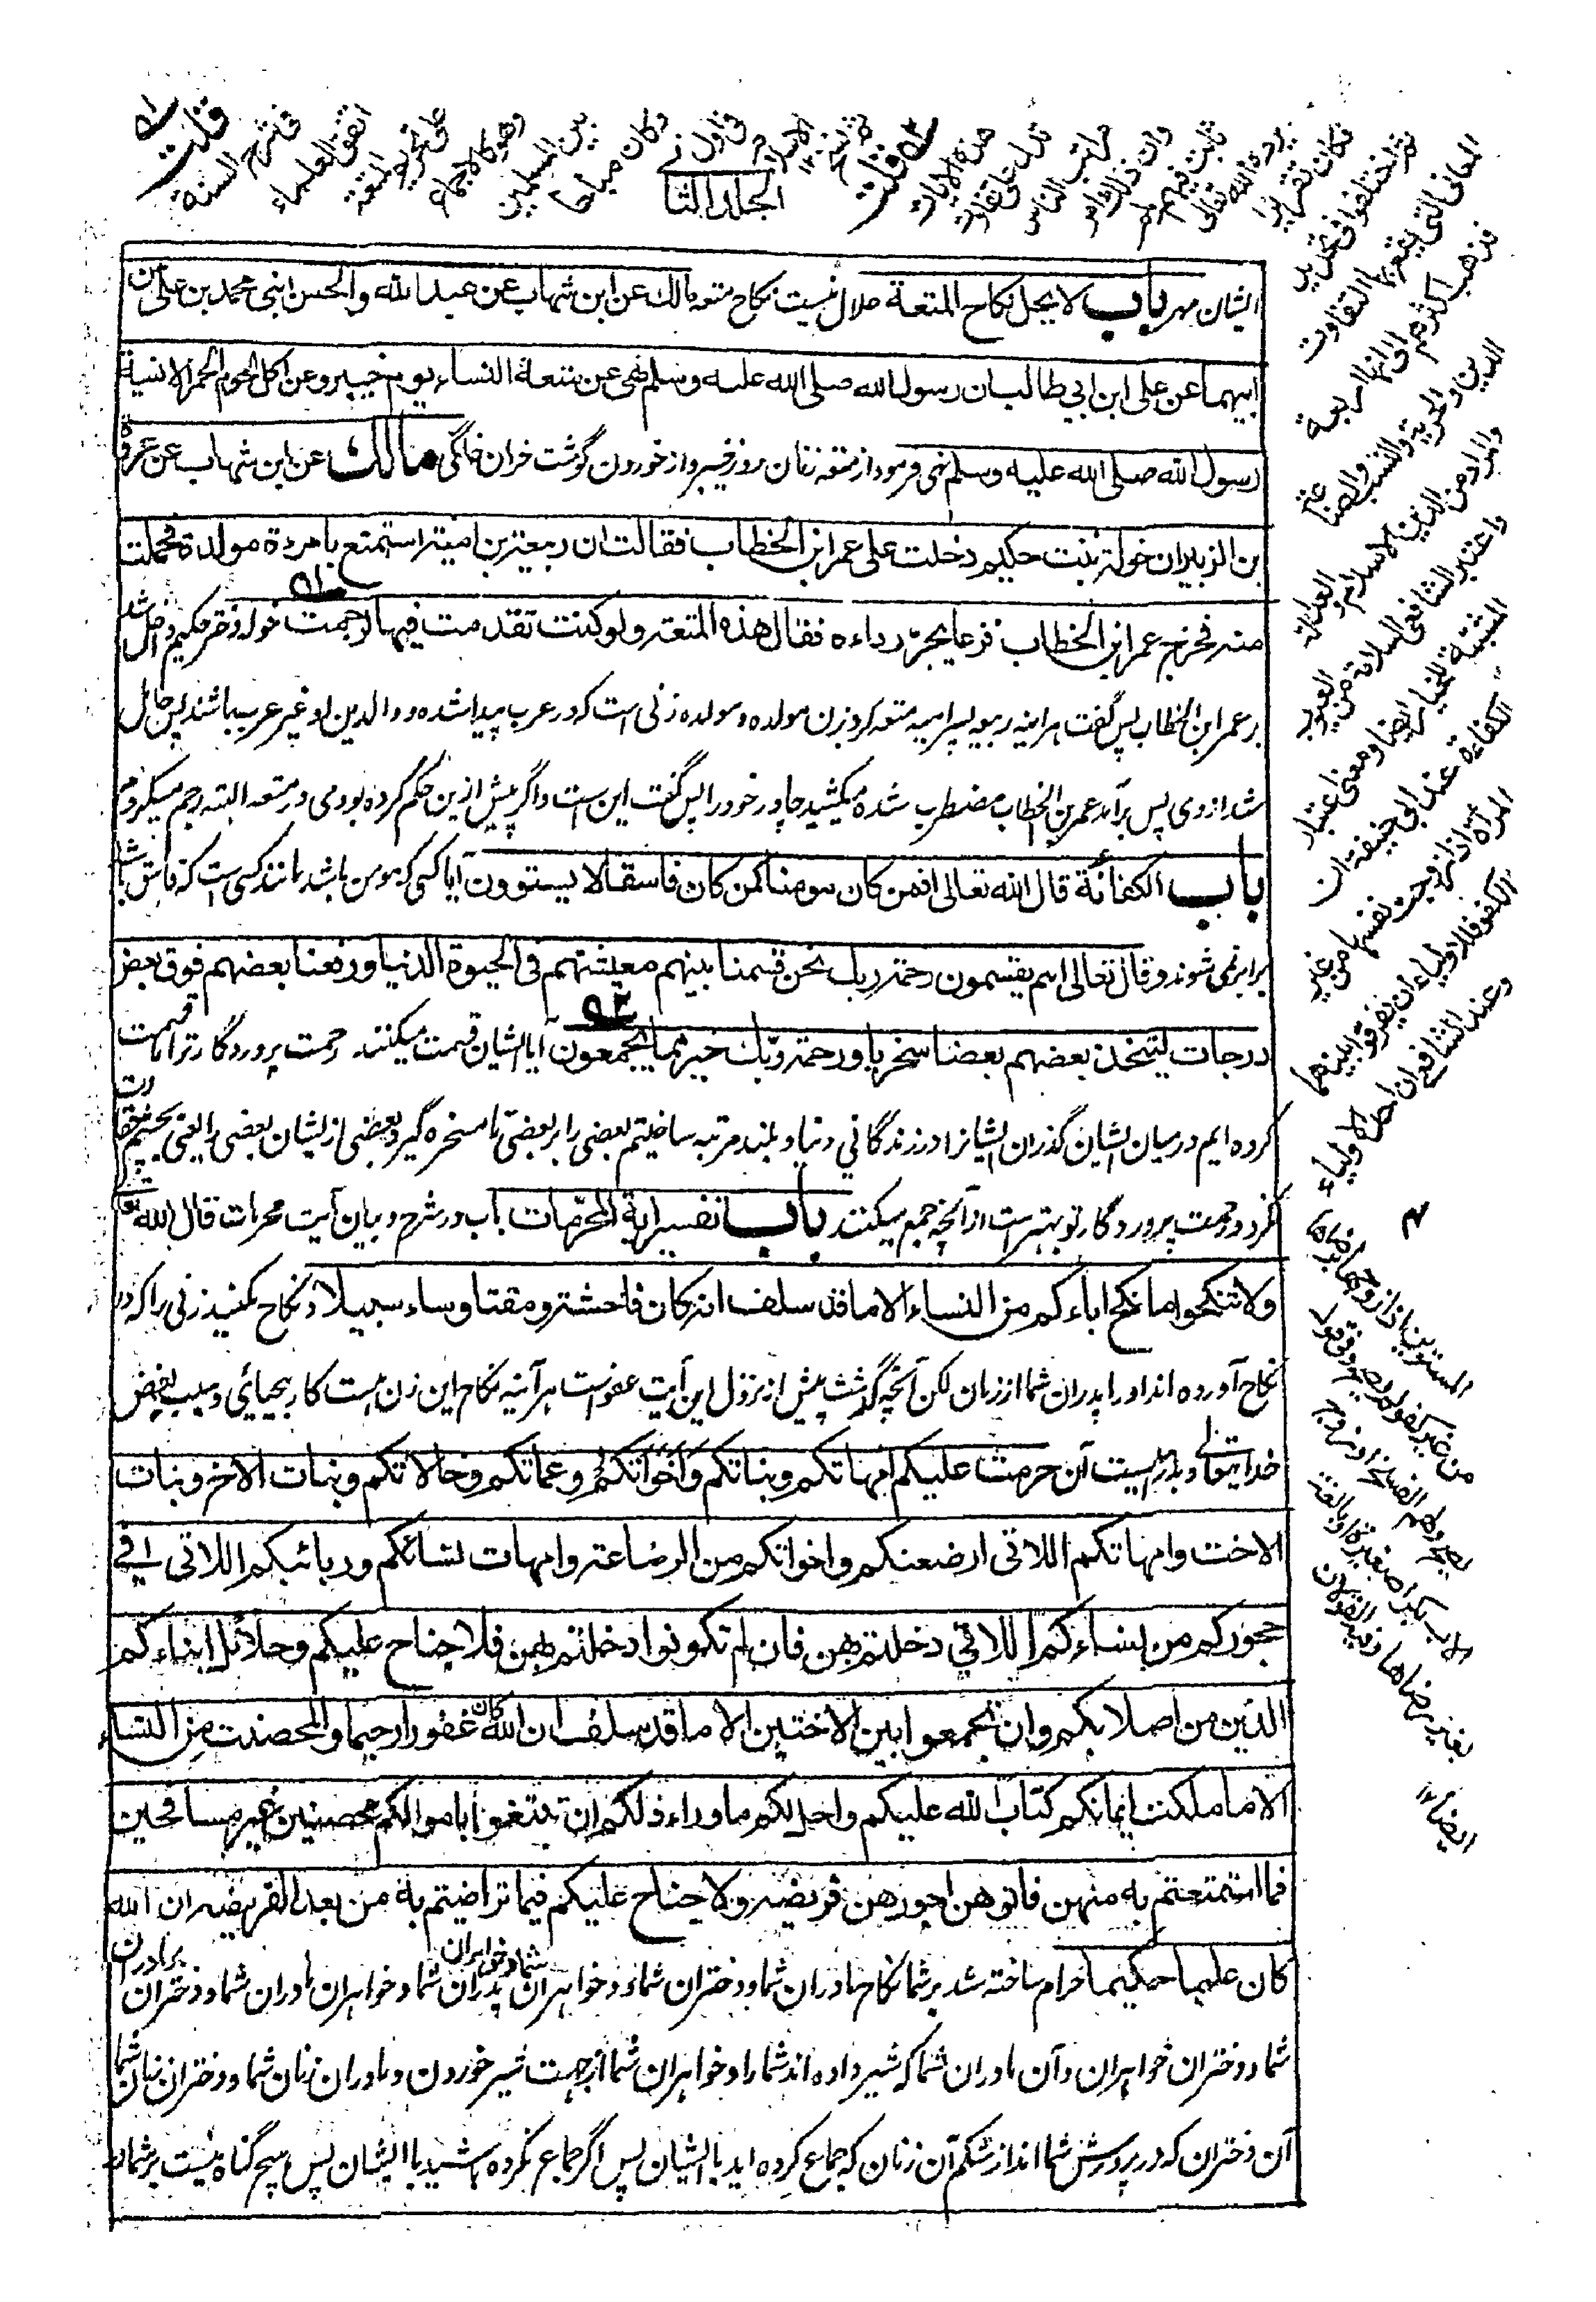 الجلد الثانے
ایشان مهر باب لا یحل نکاح المتعة حلال نیست نکاح متعه مالك عن ابن شهاب عن عبد الله والحسن ابنی محمد بن علی عن
ابیهما عن علی ابن ابی طالب ان رسول الله صلی الله علیه وسلم نهی عن متعة النساء یوم خیبر وعن اکل لحوم الحمر الانسیة
رسول الله صلی الله علیه وسلم نهی فرمود از متعه زنان روز خیبر و از خوردن گوشت خران خانگی مالك عن ابن شهاب عن عروة
بن الزبیر ان خولة بنت حکیم دخلت علی عمر ابن الخطاب فقالت ان ربیعة بن امیة استمتع بامرءة مولدة فحملت
منه فخرج عمر ابن الخطاب فزعا یجرّ رداءه فقال هذه المتعة ولو کنت تقدمت فیها لرجمت خوله دختر حکیم داخل شد
بر عمر ابن الخطاب پس گفت هر آینه ربیعه پسر امیه متعه کرد بزن مولده و مولده زنی است که در عرب پیدا شده و والدین او غیر عرب باشند پس حامل
شد از وی پس برآمد عمر بن الخطاب مضطرب شده میکشید چادر خود را پس گفت این است و اگر پیش ازین حکم کرده بودمی در متعه البته رجم میکردم
باب الکفائة قال الله تعالی افمن کان مومنا کمن کان فاسقا لا یستوون آیا کسی که مومن باشد مانند کسی است که فاسق باشد
برابر نمی شوند و قال تعالی اهم یقسمون رحمة ربك نحن قسمنا بینهم معیشتهم فی الحیوة الدنیا ورفعنا بعضهم فوق بعض
درجات لیتخذ بعضهم بعضا سخریا ورحمة ربك خیر مما یجمعون آیا ایشان قسمت میکنند رحمت پروردگار ترا ما قسمت
کرده ایم درمیان ایشان گذران ایشانرا در زندگانی دنیا و بلند مرتبه ساختیم بعضی را بر بعضی تا مسخره گیرد بعضی از ایشان بعضی را یعنی بچشم حقارت
نگرد و رحمت پروردگار تو بهتر است از آنچه جمع میکنند باب تفسیر ایة المحرّمات باب در شرح و بیان آیت محرمات قال الله تعالی
ولا تنکحوا ما نکح اباءکم من النساء الا ما قد سلف انه کان فاحشة ومقتا وساء سبیلا و نکاح مکنید زنی را که در
نکاح آورده اند او را پدران شما از زنان لکن آنچه گذشت پیش از نزول این آیت عفو است هر آئینه نکاح این زن هست کار بیحیائی و سبب بغض
خدایتعالی و بد راهیست آن حرمت علیکم امهاتکم وبناتکم واخواتکم وعماتکم وخالاتکم وبنات الاخ وبنات
الاخت وامهاتکم اللاتی ارضعنکم واخواتکم من الرضاعة وامهات نسائکم وربائبکم اللاتی فی
حجورکم من نساءکم اللاتی دخلتم بهن فان لم تکونوا دخلتم بهن فلا جناح علیکم وحلائل ابناءکم
الذین من اصلابکم وان تجمعوا بین الاختین الا ما قد سلف ان الله کان غفورا رحیما والمحصنت من النساء
الا ما ملکت ایمانکم کتاب الله علیکم واحل لکم ما وراء ذلکم ان تبتغوا باموالکم محصنین غیر مسافحین
فما استمتعتم به منهن فاتوهن اجورهن فریضة ولا جناح علیکم فیما تراضیتم به من بعد الفریضة ان الله
کان علیما حکیما حرام ساخته شد بر شما نکاح مادران شما و دختران شما و خواهران شما و خواهران پدران شما و خواهران مادران شما و دختران برادران
شما و دختران خواهران و آن مادران شما که شیر داده اند شما را و خواهران شما از جهت شیر خوردن و مادران زنان شما و دختران زنان شما
آن دختران که در پرورش شما اند از شکم آن زنان که جماع کرده اید با ایشان پس اگر جماع نکرده باشید با ایشان پس هیچ گناه نیست بر شما
قلت
فی شرح السنة
اتفق العلماء
علی تحریم المتعة
وهو کالاجماع
بین المسلمین
وکان مباحا
فی اول
الاسلام
قلت
هذه الایات
تدل علی تفاوت
مراتب الناس
وان ذلك امر
ثابت فیهم لم
یرده الله تعالی
فکان تقریرا
ثم اختلفوا فی تحدید
المعانی التی یقع بها التفاوت
فذهب اکثرهم الی انها اربعة
الدین والحریة والنسب والصناعة
والمراد من الدین الاسلام والعدالة
واعتبر الشافعی السلامة من العیوب
المثبتة للخیار ایضا ومعنی اعتبار
الکفاءة عند ابی حنیفة ان
المراة اذا زوجت نفسها من غیر
الکفو فللاولیاء ان یفرقوا بینهما
وعند الشافعی ان احد الاولیاء
المستوین اذا زوجها برضاها
من غیر کفو لم یصح وفی قول
یصح ولهم الفسخ
الاب بکرا صغیرة او بالغة
بغیر رضاها ففیه القولان
ایضا ۱۲